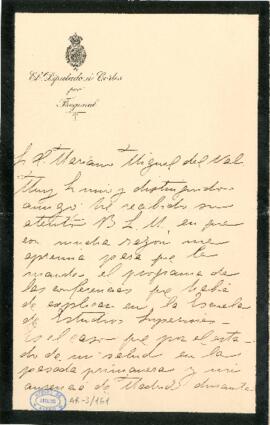 El Diputado á Cortes
por
Fregenal
S. D. Mariano Miguel del Val
Muy Sr mio y distinguido
amigo: he recibido su
atento B. L. M. en que
con mucha razon me
apremia para que le
mande el programa de
las conferencias que habia
de explicar en la Escuela
de Estudios Superiores
Es el caso que por el esta-
do de mi salud en la
pasada primavera y mi
ausencia de Madrid durante
AR-3/161